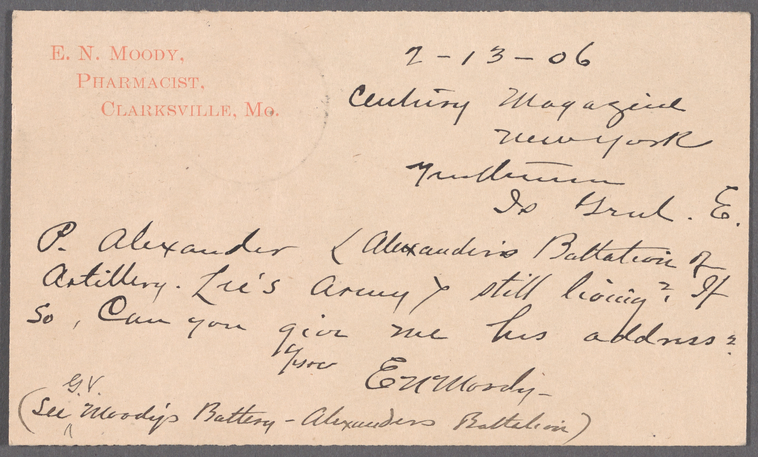 E. N. Moody,
Pharmacist,
Clarksville, Mo.
2-13-06
Century Magazine
New York
Gentlemen
Is Genl. E.
P. Alexander (Alexander's Battalion of
Artillery. Lee's Army) still living? If
so, can you give me his address?
Yours
E N Moody-
GV
(See Moody's Battery - Alexanders Battalion)